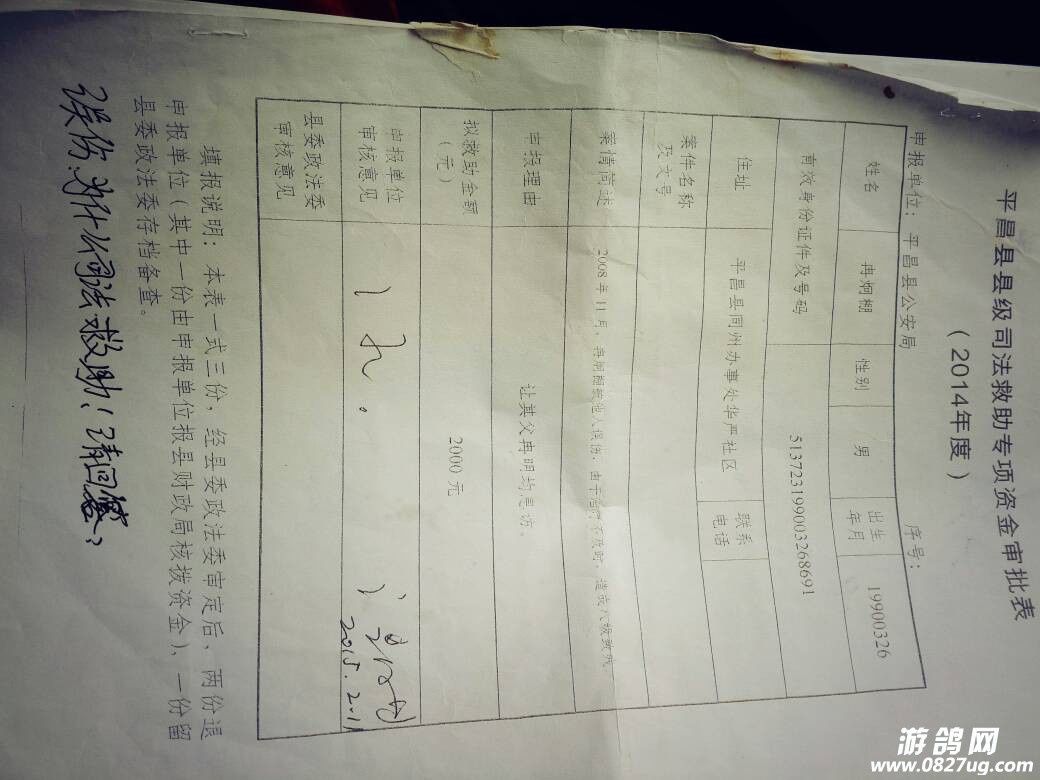 平昌县县级司法救助专项资金审批表
（2014年度）
申报单位：平昌县公安局 序号：
姓名 冉炯棚 性别 男 出生年月 19900326
有效身份证件及号码 513723199003268691
住址 平昌县同州办事处华严社区 联系电话
案件名称及文号
案情简述 2008年11月，冉炯棚被他人误伤，由于治疗不及时，造成八级致残
申报理由 让其父冉明均息访。
拟救助金额（元） 2000元
申报单位审核意见
2015.2.11
县委政法委审核意见
填报说明：本表一式三份，经县委政法委审定后，两份退
申报单位（其中一份由申报单位报县财政局核拨资金），一份留
县委政法委存档备查。
误伤为什么司法救助！请回答：
游鸽网
www.0827ug.com